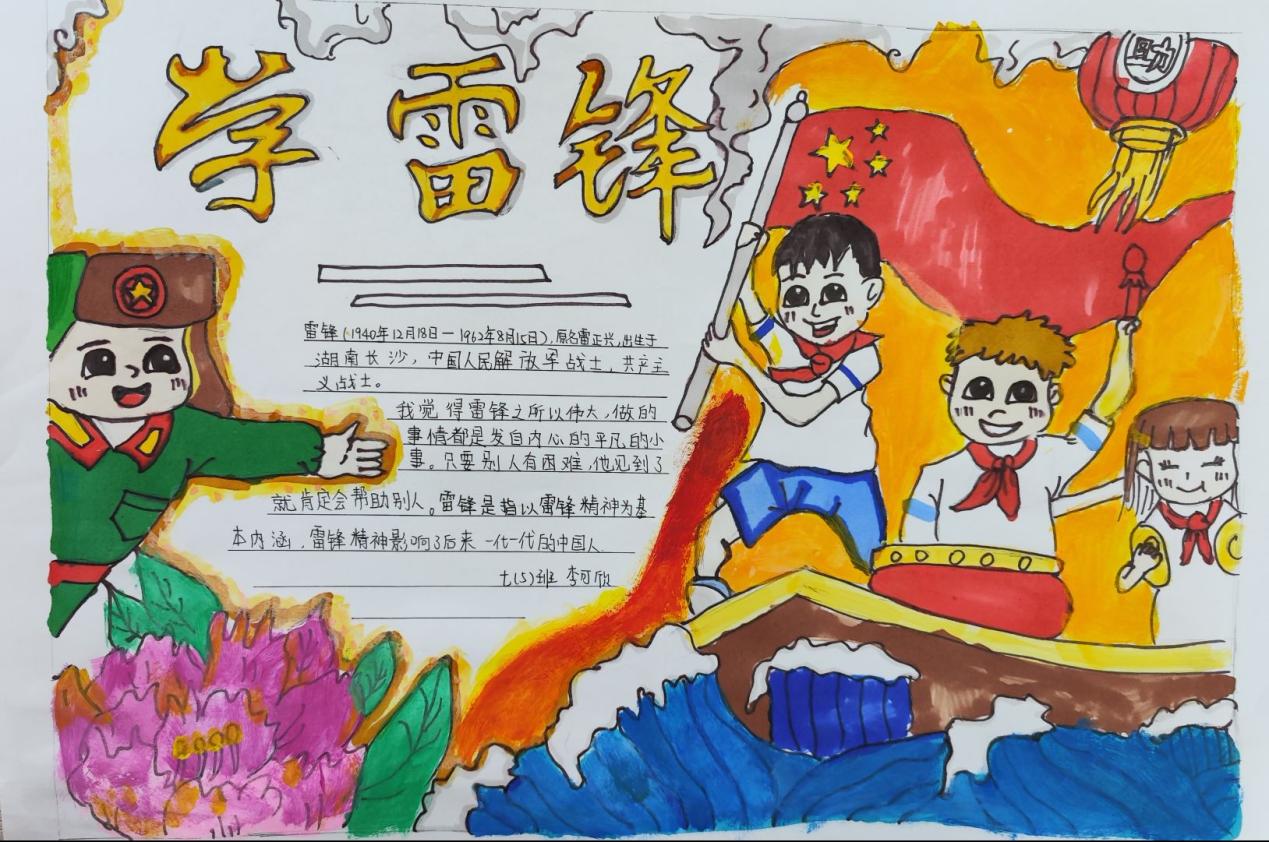 学雷锋
雷锋(1940年12月18日一1962年8月15日),原名雷正兴,出生于
湖南长沙,中国人民解放军战士,共产主
义战士。
我觉得雷锋之所以伟大,做的
事情都是发自内心的平凡的小
事。只要别人有困难,他见到了
就肯定会帮助别人。雷锋是指以雷锋精神为基
本内涵,雷锋精神影响了后来一代一代的中国人.
七(5)班 李可欣